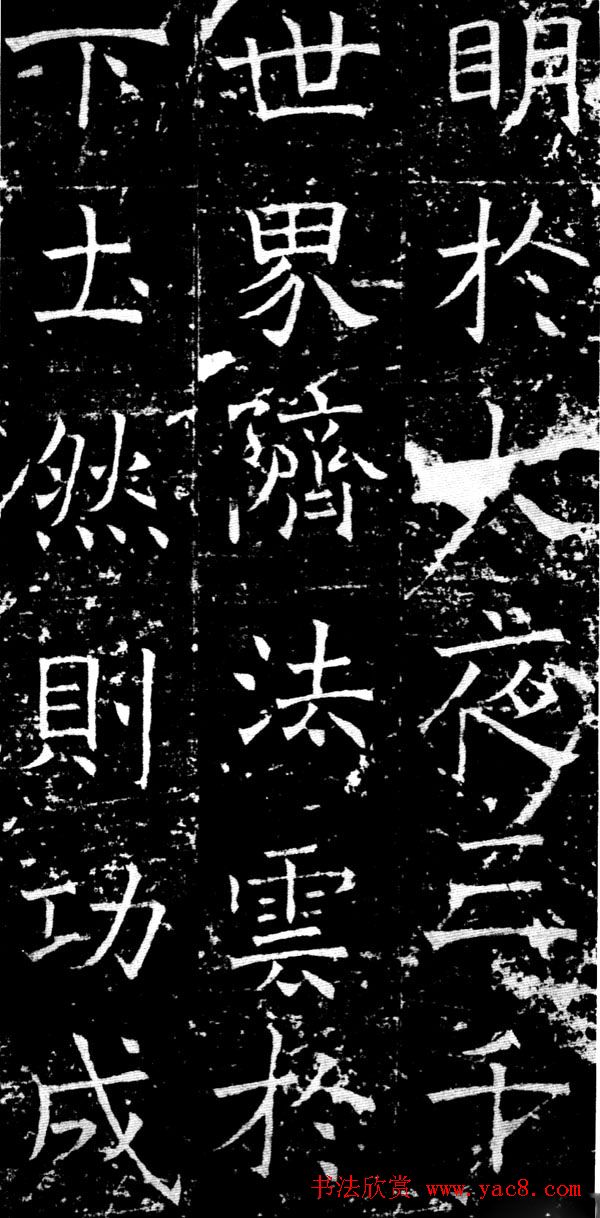 明於大夜三千
世界隮法雲於
下土然則功成
书法欣赏 www.yac8.com